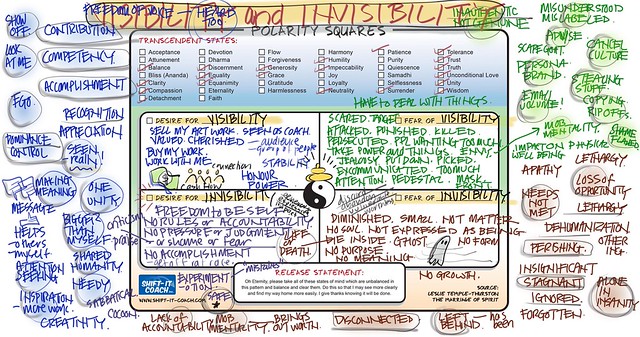 VISIBILITY and INVISIBILITY
FREEDOM OF VOICE
HEARD
SHOW OFF
CONTRIBUTION
LOOK AT ME
COMPETENCY
ACCOMPLISHMENT
EGO
RECOGNITION
APPRECIATION
DOMINANCE
CONTROL
SEEN
MAKING MEANING
ONE UNITY
MESSAGE
BIGGER THAN MYSELF
HELPS others myself
SHARED HUMANITY
ATTENTION SEEKING
NEEDY
INSPIRATION
more work
CREATIVITY
SABBATICAL
COCOON
criticism
praise
POLARITY SQUARES
TRANSCENDENT STATES:
Acceptance
Attunement
Balance
Bliss (Ananda)
Clarity
Compassion
Detachment
Devotion
Dharma
Discernment
Equality
Equanimity
Eternality
Faith
Flow
Forgiveness
Generosity
Grace
Gratitude
Harmlessness
Harmony
Humility
Impeccability
Joy
Loyalty
Neutrality
Patience
Purity
Quiescence
Samadhi
Selflessness
Silence
Surrender
Tolerance
Trust
Truth
Unconditional Love
Unity
Wisdom
HAVE TO DEAL WITH THINGS.
DESIRE FOR VISIBILITY
SELL MY ART WORK. SEEN AS COACH
VALUED. CHERISHED
BUY MY WORK.
WORK WITH ME
audience
group of people
STABILITY
connection
cash flow
HONOUR
POWER
FEAR OF VISIBILITY
SCARED. TARGET
ATTACKED. PUNISHED. KILLED.
PERSECUTED. FOR WANTING TOO MUCH
TAKE POWER AND THINGS. ENVY.
JEALOUSY. PUT DOWN. PICKED.
TOO MUCH
ATTENTION. PEDESTAL. MASK.
FRONT
DESIRE FOR INVISIBILITY
FREEDOM TO BE SELF
NO RULES or ACCOUNTABILITY
NO PRESSURE or JUDGMENT
or SHAME or FEAR
NO ACCOMPLISHMENT
LIFE OF DEATH
FEAR OF INVISIBILITY
DIMINISHED. SMALL. NOT MATTER
NO SOUL. NOT EXPRESSED AS BEING
DIE INSIDE. GHOST. NO FORM
NO PURPOSE
NO MEANING
NO GROWTH.
SHIFT-IT COACH
WWW.SHIFT-IT-COACH.COM
EXPERIMENTATION
mistakes
SAFE
RELEASE STATEMENT:
Oh Eternity, please take all of these states of mind which are unbalanced in
this pattern and balance and clear them. Do this so that I may see more clearly
and find my way home more easily. I give thanks knowing it will be done.
SOURCE:
LESLIE TEMPLE-THURSTON
THE MARRIAGE OF SPIRIT
INAUTHENTIC
NOT GENUINE
MISUNDERSTOOD
MISLABELLED.
ABUSE
SCAPEGOAT.
CANCEL CULTURE
PERSONA
BRAND
STEALING STUFF
EMAIL VOLUME!
COPYING.
RIPOFFS.
MOB MENTALITY.
IMPACT ON PHYSICAL
WELL BEING
APATHY
LETHARGY.
LOSS of OPPORTUNITY
NEEDS NOT MET
LETHARGY
DEHUMANIZATION
PERISHING.
OTHERING.
INSIGNIFICANT
STAGNANT
IGNORED.
ALONE IN INSANITY
FORGOTTEN.
LACK OF ACCOUNTABILITY
MOB MENTALITY.
BRINGS OUT WORST.
DISCONNECTED
LEFT BEHIND.
has been